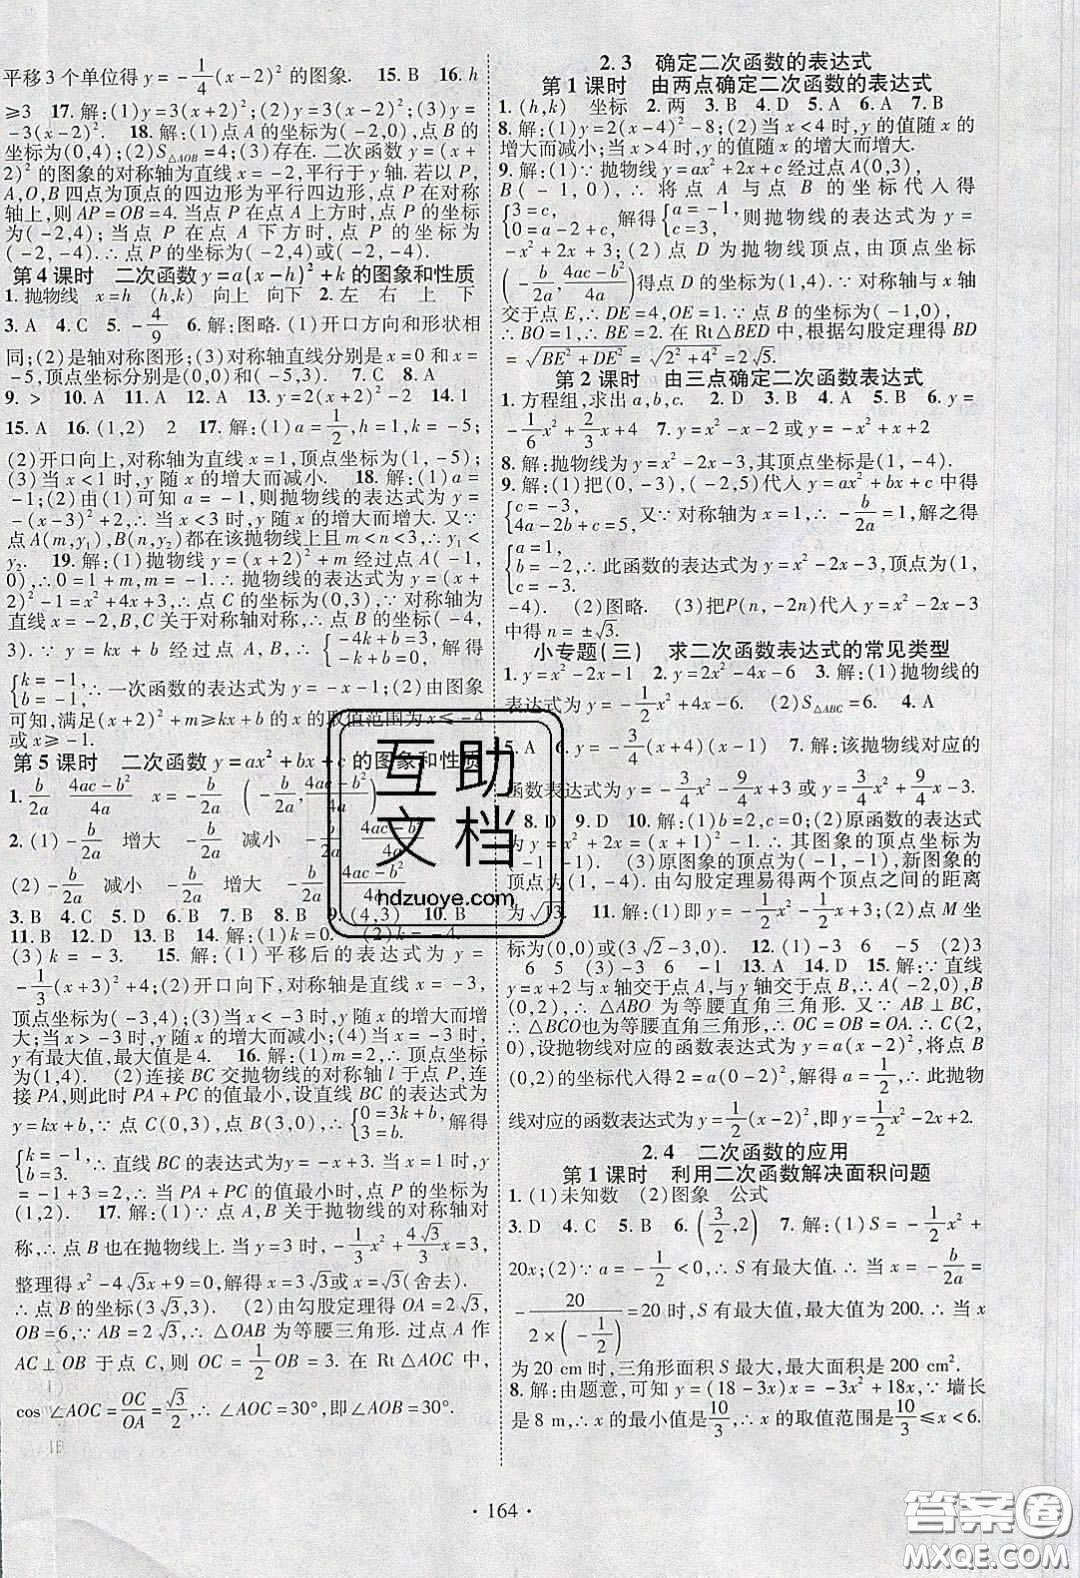 平移3个单位得 y=-1/4(x-2)²的图象. 15.B 16.h
≥3 17.解:(1)y=3(x+2)²;(2)y=3(x-2)²;(3)y=
-3(x-2)². 18.解:(1)点A的坐标为(-2,0),点B的
坐标为(0,4);(2)S△AOB=4;(3)存在. 二次函数y=(x+
2)²的图象的对称轴为直线x=-2,平行于y轴.若以P,
A,O,B四点为顶点的四边形为平行四边形,点P在对称
轴上,则AP=OB=4. 当点P在点A上方时,点P的坐标
为(-2,4);当点P在点A下方时,点P的坐标为
(-2,-4);∴点P的坐标为(-2,4)或(-2,-4).
第4课时 二次函数y=a(x-h)²+k的图象和性质
1.抛物线 x=h (h,k) 向上 向下 2.左 右 上 下
3.A 4.C 5.-4/9 6.解:图略.(1)开口方向和形状相
同;(2)是轴对称图形;(3)对称轴直线分别是x=0和x=
-5,顶点坐标分别是(0,0)和(-5,3). 7.C 8.A
9.> 10.A 11.A 12.A 13.y=2(x+2)²-2 14.1
15.A 16.(1,2) 2 17.解:(1)a=1/2,h=1,k=-5;
(2)开口向上,对称轴为直线x=1,顶点坐标为(1,-5);
(3)当x<1时,y随x的增大而减小. 18.解:(1)a=
-1;(2)由(1)可知a=-1,则抛物线的表达式为y=
-(x-3)²+2,∴当x<3时,y随x的增大而增大.又∵
点A(m,y₁),B(n,y₂)都在该抛物线上且m<n<3,∴y₁<
y₂. 19.解:∵抛物线y=(x+2)²+m经过点A(-1,
0),∴0=1+m,m=-1,∴抛物线的表达式为y=(x+
2)²-1=x²+4x+3,∴点C的坐标为(0,3),∵对称轴为
直线x=-2,B,C关于对称轴对称,∴点B的坐标(-4,
3).∵y=kx+b经过点A,B,∴{-4k+b=3, -k+b=0, 解得
{k=-1, b=-1, ∴一次函数的表达式为y=-x-1,(2)由图象
可知,满足(x+2)²+m≥kx+b的x的取值范围为x≤-4
或x≥-1.
第5课时 二次函数y=ax²+bx+c的图象和性质
1.-b/2a (4ac-b²)/4a x=-b/2a (-b/2a,(4ac-b²)/4a)
2.(1)-b/2a 增大 -b/2a 减小 -b/2a (4ac-b²)/4a
(2)-b/2a 减小 -b/2a 增大 -b/2a (4ac-b²)/4a
3.B 4.D 5.C 6.D 7.B 8.B 9.(4,3) 10.B
11.B 12.D 13.B 14.解:(1)k=0.(2)k=-4.
(3)k=-3. 15.解:(1)平移后的表达式为y=
-1/3(x+3)²+4;(2)开口向下,对称轴为直线x=-3,
顶点坐标为(-3,4);(3)当x<-3时,y随x的增大而增
大;当x>-3时,y随x的增大而减小;(4)当x=-3时,
y有最大值,最大值是4. 16.解:(1)m=2,顶点的坐标
为(1,4).(2)连接BC交抛物线的对称轴l于点P,连
接PA,则此时PA+PC的值最小,设直线BC的表达式为
y=kx+b,∵点C(0,3),点B(3,0),∴{0=3k+b, 3=b, 解得
{k=-1, b=3. ∴直线BC的表达式为y=-x+3.当x=1时,y=
-1+3=2,∴当PA+PC的值最小时,点P的坐标为
(1,2). 17.解:(1)∵点A,B关于抛物线的对称轴对
称,∴点B也在抛物线上.当y=3时,3=-x²+4√3/3x,
整理得x²-4√3x+9=0,解得x=3√3或x=√3(舍去).
∴点B的坐标(3√3,3).(2)由勾股定理得OA=2√3,
OB=6,∵AB=2√3,∴△OAB为等腰三角形.过点A作
AC⊥OB于点C,则OC=1/2OB=3.在Rt△AOC中,
cos∠AOC=OC/OA=√3/2,∴∠AOC=30°,即∠AOB=30°.
2.3 确定二次函数的表达式
第1课时 由两点确定二次函数的表达式
1.(h,k) 坐标 2.两 3.B 4.D 5.A 6.A 7.B
8.解:(1)y=2(x-4)²-8;(2)当x<4时,y的值随x的
增大而减小;当x>4时,y的值随x的增大而增大.
9.解:(1)∵抛物线y=ax²+2x+c经过点A(0,3),
B(-1,0),∴将点A与点B的坐标代入得
{3=c, 0=a-2+c, 解得{a=-1, c=3. 则抛物线的表达式为y=
-x²+2x+3;(2)点D为抛物线顶点,由顶点坐标
(-b/2a,(4ac-b²)/4a)得点D的坐标为(1,4),∵对称轴与x轴
交于点E,∴DE=4,OE=1,∵点B的坐标为(-1,0),
∴BO=1,∴BE=2.在Rt△BED中,根据勾股定理得BD
=√(BE²+DE²)=√(2²+4²)=2√5.
第2课时 由三点确定二次函数表达式
1.方程组,求出a,b,c. 2.D 3.D 4.A 5.B 6.y=
-1/6x²+2/3x+4 7.y=x²-x-2或y=-x²+x+2
8.解:抛物线为y=x²-2x-3,其顶点坐标为(1,-4).
9.解:(1)把(0,-3),(-2,5)代入y=ax²+bx+c中得
{c=-3, 4a-2b+c=5, 又∵对称轴为x=1,∴-b/2a=1,解之得
{a=1, b=-2, c=-3, ∴此函数的表达式为y=x²-2x-3,顶点为(1,
-4).(2)图略.(3)把P(n,-2n)代入y=x²-2x-3
中得n=±√3.
小专题(三) 求二次函数表达式的常见类型
1.y=x²-2x 2.y=2x²-4x-6 3.解:(1)抛物线的
表达式为y=-x²+4x-6.(2)S△ABC=6. 4.A
5.A 6.y=-3/4(x+4)(x-1) 7.解:该抛物线对应的
函数表达式为y=-3/4x²-9/4x+3或y=3/4x²+9/4x-3.
8.D 9.D 10.解:(1)b=2,c=0;(2)原函数的表达式
为y=x²+2x=(x+1)²-1.∴其图象的顶点坐标为
(-1,-1).(3)原图象的顶点为(-1,-1),新图象的
顶点为(1,-4).由勾股定理易得两个顶点之间的距离
为√13. 11.解:(1)即y=-1/2x²-1/2x+3;(2)点M坐
标为(0,0)或(3√2-3,0). 12.(1)-3 -5 (2)3
6 5 (3)-3 6 -1 13.A 14.D 15.解:∵直线
y=x+2与x轴交于点A,与y轴交于点B,∴A(-2,0),B
(0,2),∴△ABO为等腰直角三角形.又∵AB⊥BC,
∴△BCO也为等腰直角三角形,∴OC=OB=OA.∴C(2,
0),设抛物线对应的函数表达式为y=a(x-2)²,将点B
(0,2)的坐标代入得2=a(0-2)²,解得a=1/2,∴此抛物
线对应的函数表达式为y=1/2(x-2)²,即y=1/2x²-2x+2.
2.4 二次函数的应用
第1课时 利用二次函数解决面积问题
1.(1)未知数 (2)图象 公式
3.D 4.C 5.B 6.(3/2,2) 7.解:(1)S=-1/2x²+
20x;(2)∵a=-1/2<0,∴S有最大值.∴当x=-b/2a=
-20/(2×(-1/2))=20时,S有最大值,最大值为200.∴当x
为20 cm时,三角形面积S最大,最大面积是200 cm².
8.解:由题意,可知y=(18-3x)x=-3x²+18x,∵墙长
是8 m,∴x的最小值是10/3,∴x的取值范围是10/3≤x<6.
互助
文档
hdzuoye.com
· 164 ·
答案圈
MXQE.COM